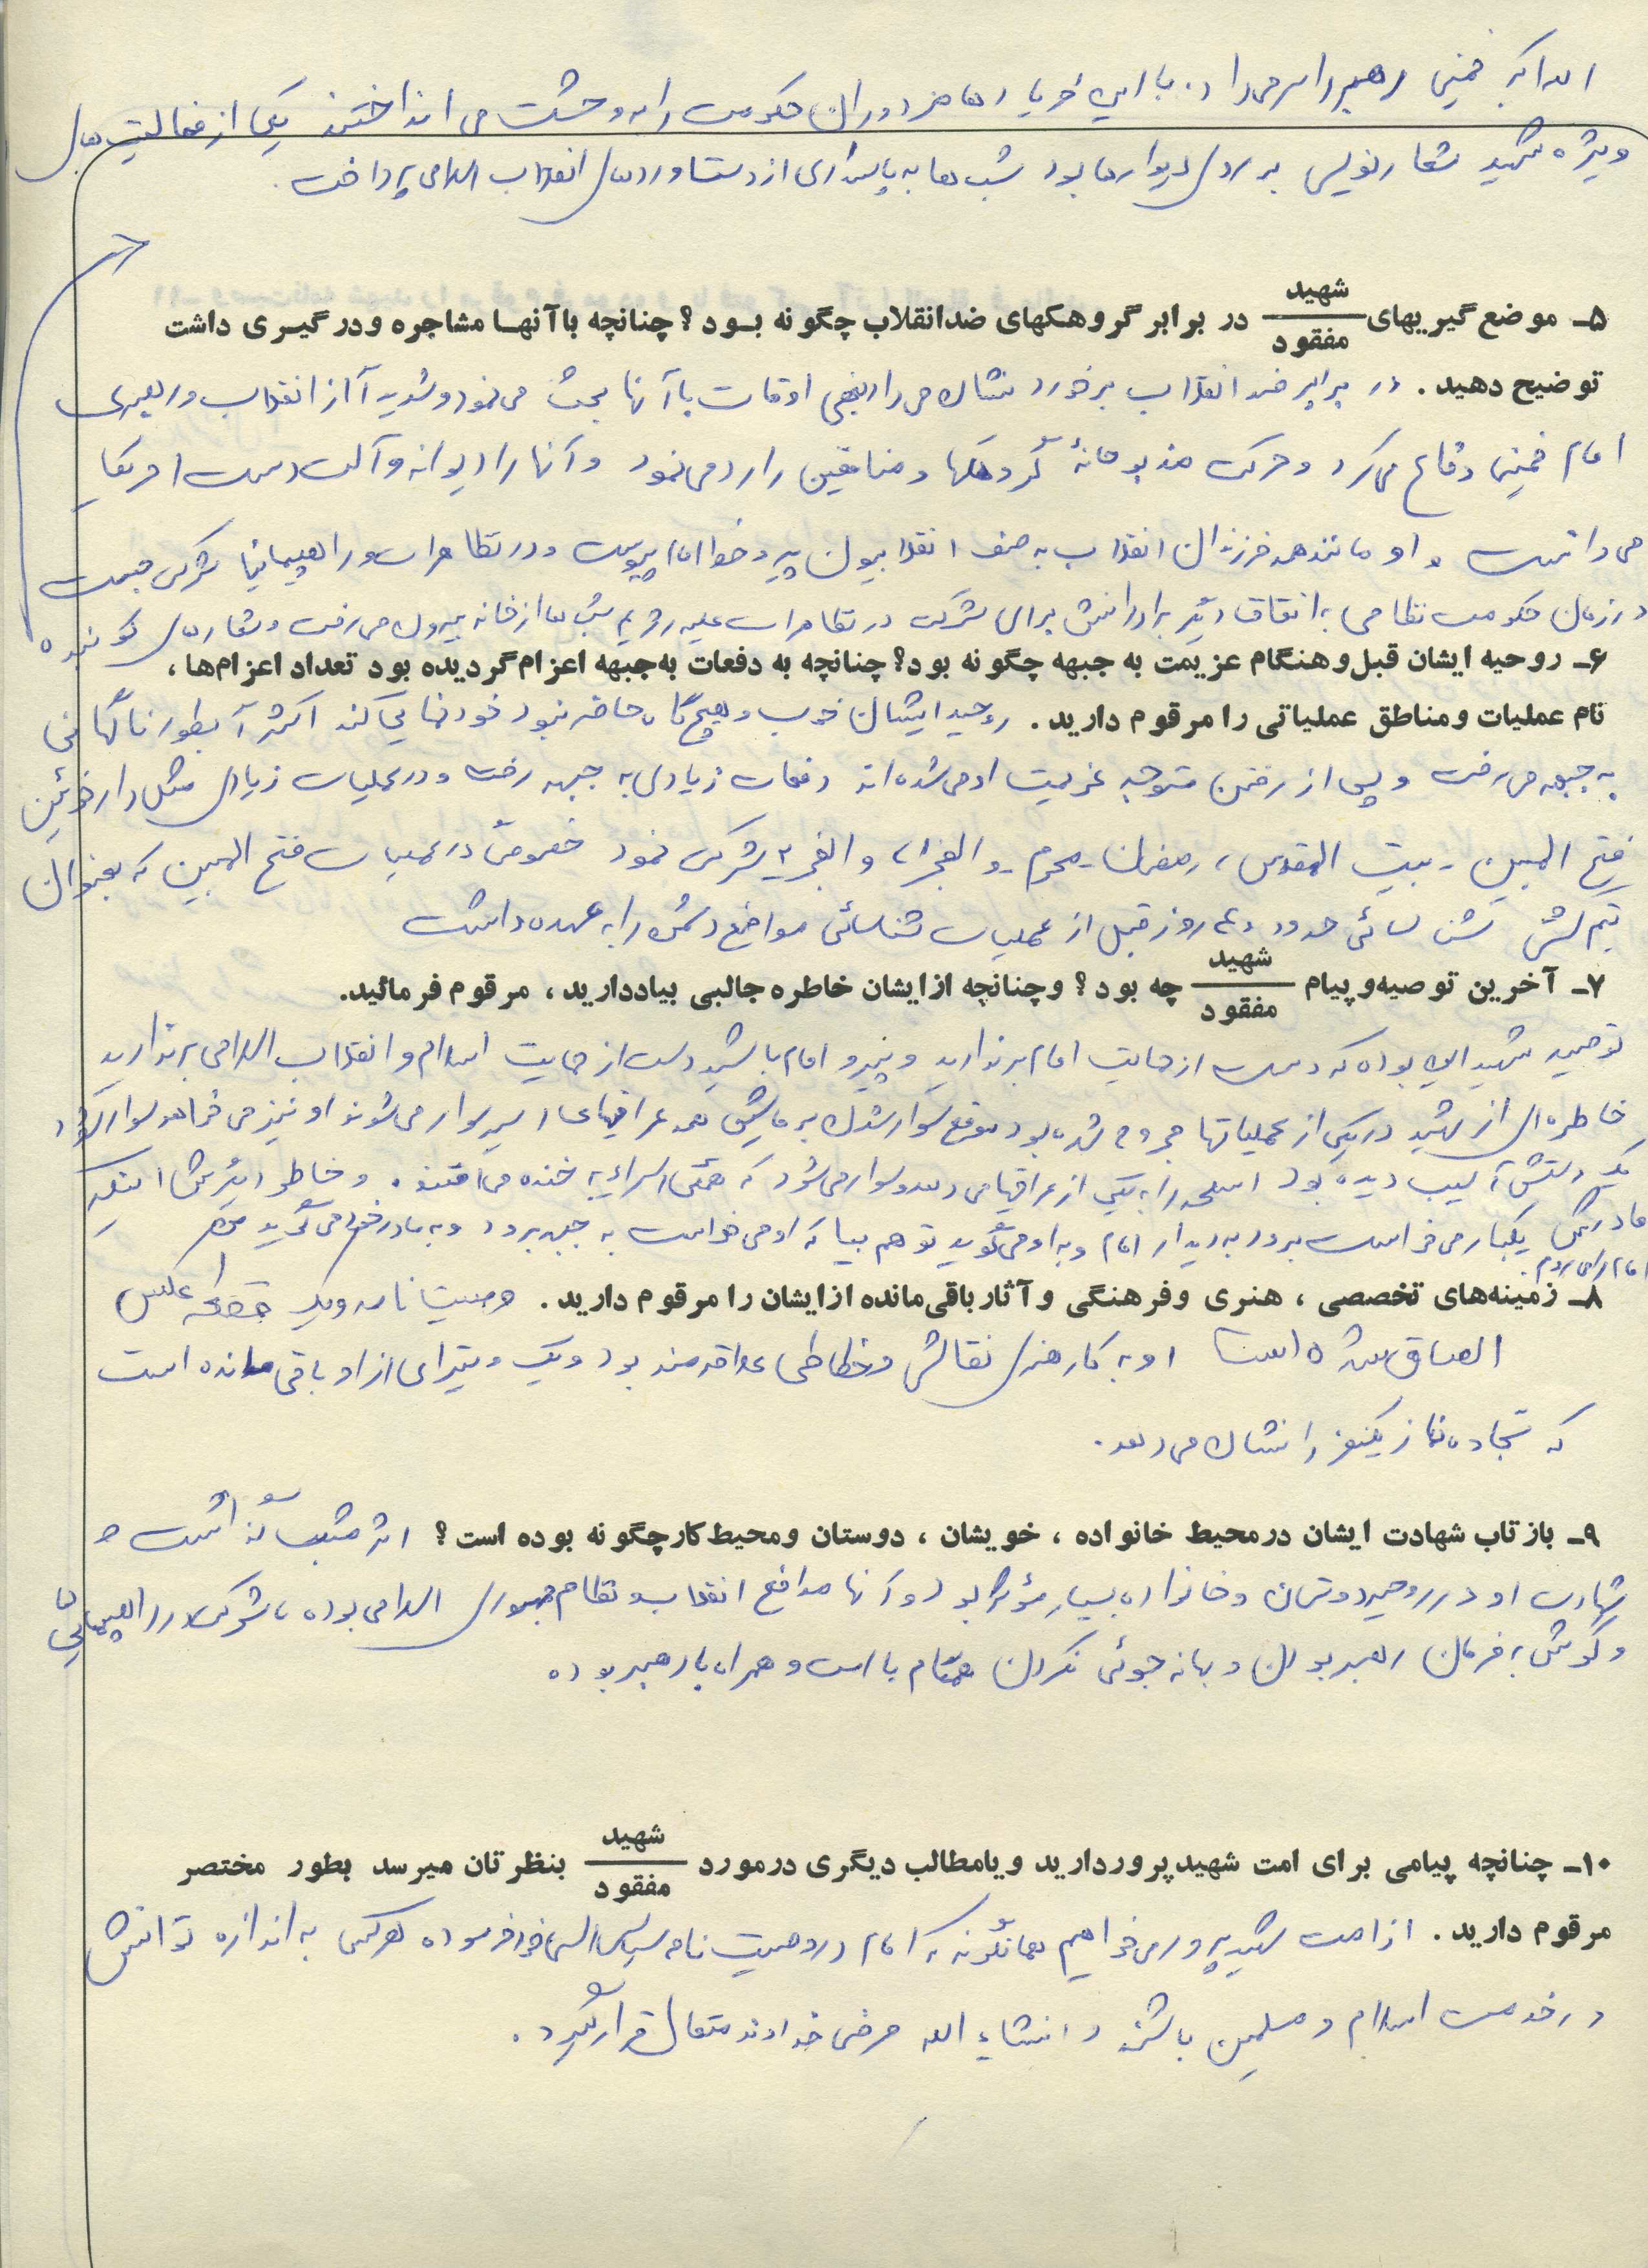 الله اکبر خمینی رهبر را سر می‌داد. با این فریادها مزدوران حکومت را به وحشت می انداختند یکی از فعالیت های
ویژه شهید شعارنویسی بر روی دیوارها بود شب ها به پاسداری از دستاوردهای انقلاب اسلامی پرداخت.
۵ـ موضع گیریهای شهید / مفقود در برابر گروهکهای ضدانقلاب چگونه بود؟ چنانچه باآنها مشاجره ودرگیری داشت
توضیح دهید. در برابر ضد انقلاب برخورد نشان می داد بعضی اوقات با آنها بحث می نمود و شدیداً از انقلاب و رهبری
امام خمینی دفاع می کرد و حرکت مذبوحانهٔ گروهکها و منافقین را رد می نمود و آنها را دیوانه و آلت دست امریکا
می دانست و او مانند همه فرزندان انقلاب به صف انقلابیون پیرو خط امام پیوست و در تظاهرات و راهپیمائیها شرکت جست
در زمان حکومت نظامی به اتفاق دیگر برادرانش برای شرکت در تظاهرات علیه رژیم شب ها از خانه بیرون می رفت و شعارهای کوبنده
۶ـ روحیه ایشان قبل وهنگام عزیمت به جبهه چگونه بود؟ چنانچه به دفعات به‌جبهه اعزام گردیده بود تعداد اعزام‌ها،
نام عملیات ومناطق عملیاتی را مرقوم دارید. روحیه ایشان خوب و هیچ گاه حاضر نبود خودنمایی کند اکثراً بطور ناگهانی
به جبهه می رفت و پس از رفتن متوجه عزیمت او می شده اند دفعات زیادی به جبهه رفت و در عملیات زیادی مثل دارخوئین
فتح المبین ـ بیت المقدس، رمضان ـ محرم ـ والفجر ۱، والفجر ۲ شرکت نمود خصوصاً در عملیات فتح المبین که بعنوان
تیم گشتی شناسائی حدود روز قبل از عملیات شناسائی مواضع دشمن را به عهده داشت
۷ـ آخرین توصیه‌وپیام شهید / مفقود چه بود؟ وچنانچه ازایشان خاطره‌جالبی بیاددارید، مرقوم فرمائید.
توصیه شهید این بوده که دست از حمایت امام برندارید و پیرو امام باشید دست از حمایت اسلام و انقلاب اسلامی برندارید
خاطره ای از شهید در یکی از عملیاتها مجروح شده بود موقع سوار شدن بر ماشین همه عراقیهای اسیر سوار می شوند او نیز می خواهد سوار شود
یک دستش آسیب دیده بود اسلحه را به یکی از عراقیها می دهد و سوار می شود که همگی اسراء به خنده می افتند. و خاطره دیگرش اینکه
مادرش یکبار می خواست برود به دیدار امام و به او می گوید تو هم بیا که او می خواست به جبهه برود و به مادر خود می گوید
۸ـ زمینه‌های تخصصی، هنری وفرهنگی وآثار باقی‌مانده ازایشان را مرقوم دارید. وصیت نامه و یک قطعه عکس
الصاق شده است او به کار هنری نقاشی و خطاطی علاقه مند بود و یک ویترای از او باقی مانده است
که سجاده نماز یکنفر را نشان می دهد.
۹ـ بازتاب شهادت ایشان درمحیط خانواده، خویشان، دوستان ومحیط‌کارچگونه بوده است؟ اثر مثبت گذاشت و
شهادت او در روحیه دوستان و خانواده بسیار مؤثر بود و آنها مدافع انقلاب و نظام جمهوری اسلامی بوده، شرکت در راهپیمائی ها
و گوش به فرمان رهبر بودن و بهانه جوئی نکردن همگام با امت و همراه با رهبر بوده
۱۰ـ چنانچه پیامی برای امت شهیدپروردارید ویامطالب دیگری درمورد شهید / مفقود بنظرتان میرسد بطور مختصر
مرقوم دارید. از امت شهید پرور می خواهیم همانگونه که امام در وصیت نامه سیاسی الهی خود فرموده هرکس به اندازه توانش
در خدمت اسلام و مسلمین باشد و انشاء الله مرضی خداوند متعال قرار گیرد.